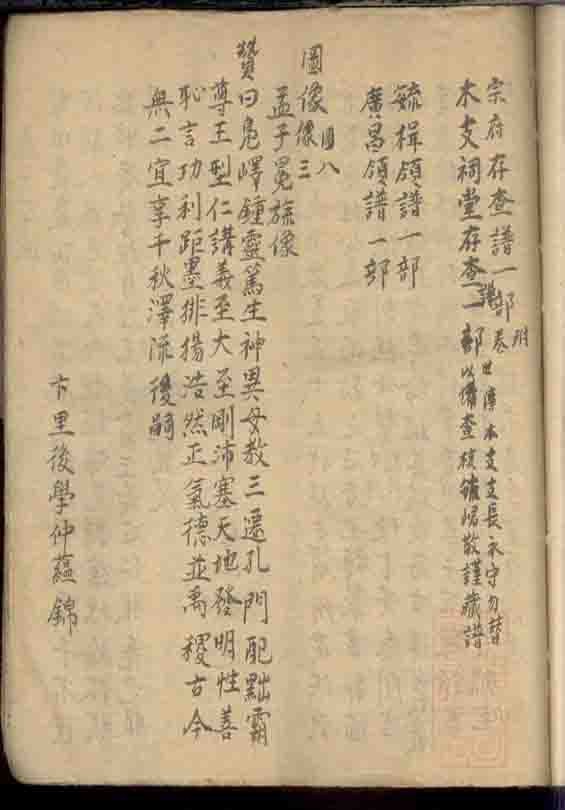 宗府存查譜一部
木支祠堂存查譜一部附卷世傳本支支長永守勿替
以備查核 敬謹藏譜
毓楫領譜一部
廣昌領譜一部
圖像圖八
像三
孟子冕旒像
贊曰鳧嶧鍾靈篤生神異母教三遷孔門配黜霸
尊王型仁講義至大至剛沛塞天地發明性善
恥言功利距墨排揚浩然正氣德並禹稷古今
無二宜享千秋澤流後嗣
卞里後學仲蘊錦